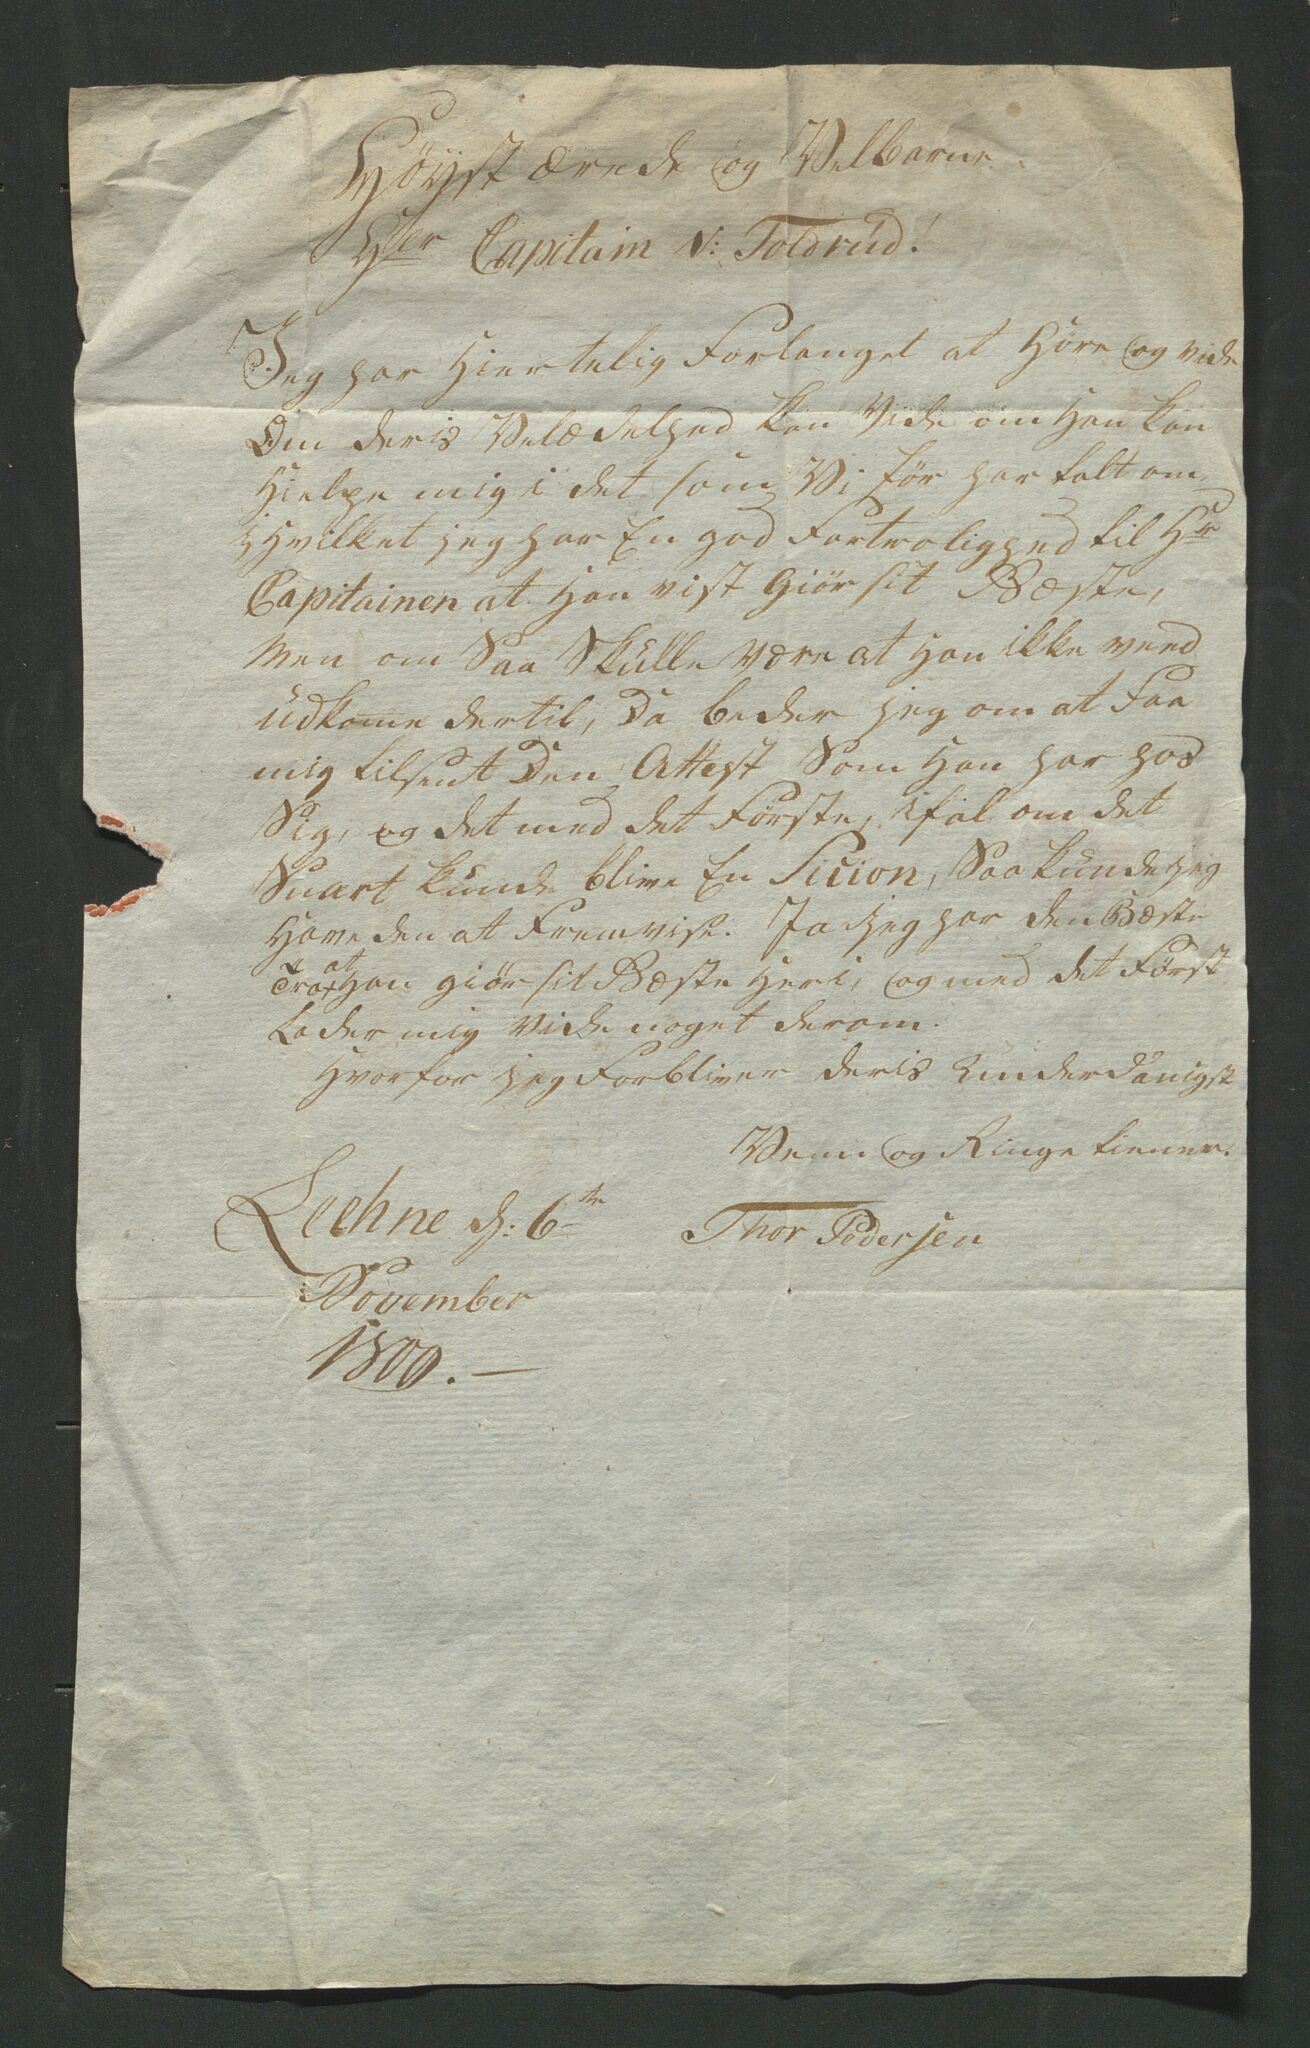 Høyst ærede og Velbaarne
Her Capitain v: Toldrud!
Jeg har Hiertelig Forlanget at Høre og vide
Om deris Velædelhed kan Vide om Han kan
Hielpe mig i det som Vi før har talt om
i Hvilket jeg har En god Fortrolighed til Hr
Capitainen at Han vist Giør sit Bæste,
Men om Saa Skulle være at Han ikke veed
Udkome dertil, Da beder jeg om at Faa
mig tilsent Den Attest Som Han har hos
Sig, og det med det Første, ifal om det
Snart kunde blive En Sicion, Saa kunde jeg
Have den at Fremvise. Ja jeg har den Bæste
Troe at Han giør sit Bæste Heri, og med det Først
Lader mig Vide noget derom.
Hvorfor jeg Forbliver deris Underdanigst
Venn og Ringe tiener.
Leehne d: 6te Thor Pedersen
November
1800. —